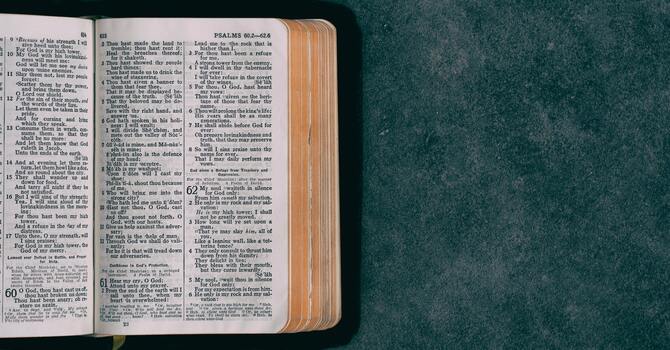 9 Because of his strength I will
give heed unto thee;
For God is my high tower.
10 My God with his lovingkindness
will meet me:
God will let me see my desire
11 Slay them not, lest my people
forget:
Scatter them by thy power,
and bring them down,
O Lord our shield.
12 For the sin of their mouth, and
the words of their lips,
Let them even be taken in their
pride,
And for cursing and lying
which they speak.
13 Consume them in wrath, consume
them, so that they
shall be no more:
And let them know that God
ruleth in Jacob,
Unto the ends of the earth.
14 And at evening let them return,
let them howl like a dog,
And go round about the city.
15 They shall wander up and
down for food,
And tarry all night if they be
not satisfied.
16 But I will sing of thy strength;
Yea, I will sing aloud of thy
lovingkindness in the morning:
For thou hast been my high
tower,
And a refuge in the day of my
distress.
17 Unto thee, O my strength, will
I sing praises:
For God is my high tower, the
God of my mercy.
60 O God, thou hast cast us off,
thou hast broken us down;
Thou hast been angry; oh restore
us again.
PSALMS 60.2—62.6
2 Thou hast made the land to
tremble; thou hast rent it:
Heal the breaches thereof;
for it shaketh.
3 Thou hast showed thy people
hard things:
Thou hast made us to drink the
wine of staggering.
4 Thou hast given a banner to
them that fear thee,
That it may be displayed because
of the truth. [Sē'läh
5 That thy beloved may be delivered,
Save with thy right hand, and
answer us.
6 God hath spoken in his holiness:
I will exult;
I will divide Shē'chĕm, and
mete out the valley of Sŭc'cŏth.
7 Gĭl'ē-ăd is mine, and Mȧ-năs'sĕh
is mine;
Ē'phrȧ-ĭm also is the defence
of my head;
Jū'dȧh is my sceptre.
8 Mō'ăb is my washpot;
Upon Ē'dŏm will I cast my
shoe:
Phĭ-lĭs'tĭ-ȧ, shout thou because
of me.
9 Who will bring me into the
strong city?
Who hath led me unto Ē'dŏm?
10 Hast not thou, O God, cast
us off?
And thou goest not forth, O
God, with our hosts.
11 Give us help against the adversary;
For vain is the help of man.
12 Through God we shall do valiantly;
For he it is that will tread down
our adversaries.
Confidence in God's Protection.
For the Chief Musician; on a stringed
instrument. A Psalm of David.
61 Hear my cry, O God;
Attend unto my prayer.
2 From the end of the earth will I
call unto thee, when my
heart is overwhelmed:
Lead me to the rock that is
higher than I.
3 For thou hast been a refuge
for me,
A strong tower from the enemy.
4 I will dwell in thy tabernacle
for ever:
I will take refuge in the covert
of thy wings. [Sē'läh
5 For thou, O God, hast heard
my vows:
Thou hast given me the heritage
of those that fear thy
name.
6 Thou wilt prolong the king's life;
His years shall be as many
generations.
7 He shall abide before God for
ever:
Oh prepare lovingkindness and
truth, that they may preserve
him.
8 So will I sing praise unto thy
name for ever,
That I may daily perform my
vows.
God alone a Refuge from Treachery and
Oppression.
62 My soul waiteth in silence
for God only:
From him cometh my salvation.
2 He only is my rock and my salvation:
He is my high tower; I shall
not be greatly moved.
3 How long will ye set upon a
man,
That ye may slay him, all of
you,
Like a leaning wall, like a tottering
fence?
4 They only consult to thrust him
down from his dignity;
They delight in lies;
They bless with their mouth,
but they curse inwardly.
[Sē'läh
5 My soul, wait thou in silence
for God only;
For my expectation is from him.
6 He only is my rock and my salvation: